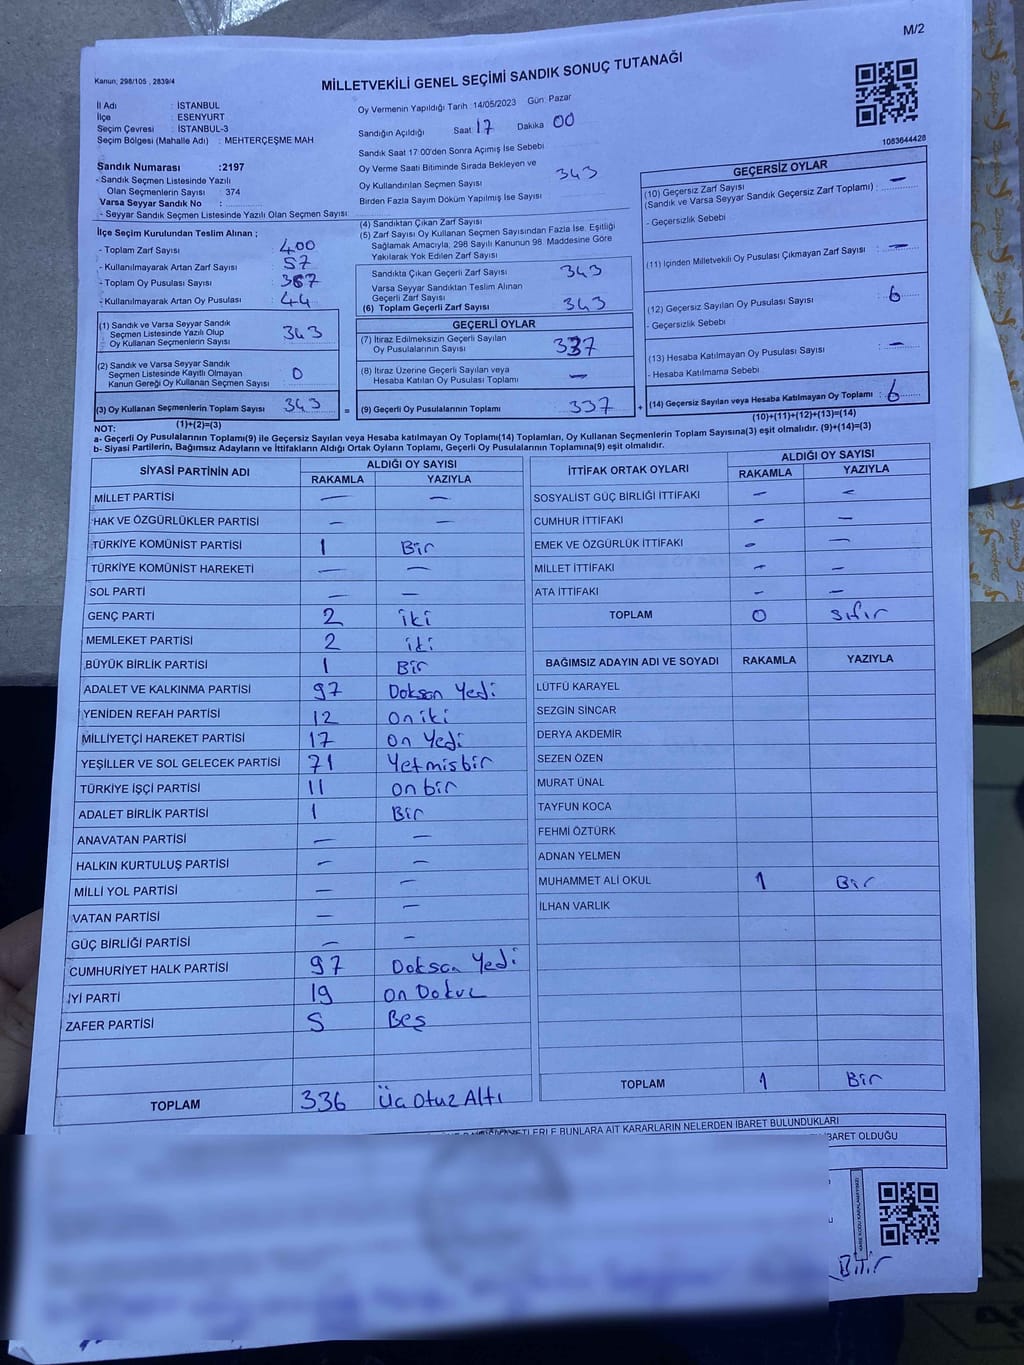 M/2
Kanun; 298/105 , 2839/4
MİLLETVEKİLİ GENEL SEÇİMİ SANDIK SONUÇ TUTANAĞI
1083644428
İl Adı : İSTANBUL
İlçe : ESENYURT
Seçim Çevresi : İSTANBUL-3
Seçim Bölgesi (Mahalle Adı) : MEHTERÇEŞME MAH
Sandık Numarası :2197
- Sandık Seçmen Listesinde Yazılı
Olan Seçmenlerin Sayısı : 374
Varsa Seyyar Sandık No :
- Seyyar Sandık Seçmen Listesinde Yazılı Olan Seçmen Sayısı:
Oy Vermenin Yapıldığı Tarih :14/05/2023 Gün: Pazar
Sandığın Açıldığı Saat 17 Dakika 00
Sandık Saat 17:00'den Sonra Açımış İse Sebebi
Oy Verme Saati Bitiminde Sırada Bekleyen ve
Oy Kullandırılan Seçmen Sayısı 343
Birden Fazla Sayım Döküm Yapılmış İse Sayısı
İlçe Seçim Kurulundan Teslim Alınan ;
- Toplam Zarf Sayısı 400
- Kullanılmayarak Artan Zarf Sayısı : 57
- Toplam Oy Pusulası Sayısı : 387
- Kullanılmayarak Artan Oy Pusulası : 44
(1) Sandık ve Varsa Seyyar Sandık
Seçmen Listesinde Yazılı Olup
Oy Kullanan Seçmenlerin Sayısı 343
(2) Sandık ve Varsa Seyyar Sandık
Seçmen Listesinde Kayıtlı Olmayan
Kanun Gereği Oy Kullanan Seçmen Sayısı 0
(3) Oy Kullanan Seçmenlerin Toplam Sayısı 343
(1)+(2)=(3)
(4) Sandıktan Çıkan Zarf Sayısı
(5) Zarf Sayısı Oy Kullanan Seçmen Sayısından Fazla İse, Eşitliği
Sağlamak Amacıyla, 298 Sayılı Kanunun 98. Maddesine Göre
Yakılarak Yok Edilen Zarf Sayısı
Sandıkta Çıkan Geçerli Zarf Sayısı 343
Varsa Seyyar Sandıktan Teslim Alınan
Geçerli Zarf Sayısı
(6) Toplam Geçerli Zarf Sayısı 343
GEÇERLİ OYLAR
(7) İtiraz Edilmeksizin Geçerli Sayılan
Oy Pusulalarının Sayısı 337
(8) İtiraz Üzerine Geçerli Sayılan veya
Hesaba Katılan Oy Pusulası Toplamı —
= (9) Geçerli Oy Pusulalarının Toplamı 337 +
GEÇERSİZ OYLAR
(10) Geçersiz Zarf Sayısı
(Sandık ve Varsa Seyyar Sandık Geçersiz Zarf Toplamı) : —
- Geçersizlik Sebebi
(11) İçinden Milletvekili Oy Pusulası Çıkmayan Zarf Sayısı : —
(12) Geçersiz Sayılan Oy Pusulası Sayısı : 6
- Geçersizlik Sebebi
(13) Hesaba Katılmayan Oy Pusulası Sayısı : —
- Hesaba Katılmama Sebebi
(14) Geçersiz Sayılan veya Hesaba Katılmayan Oy Toplamı : 6
(10)+(11)+(12)+(13)=(14)
NOT:
a- Geçerli Oy Pusulalarının Toplamı(9) ile Geçersiz Sayılan veya Hesaba katılmayan Oy Toplamı(14) Toplamları, Oy Kullanan Seçmenlerin Toplam Sayısına(3) eşit olmalıdır. (9)+(14)=(3)
b- Siyasi Partilerin, Bağımsız Adayların ve İttifakların Aldığı Ortak Oyların Toplamı, Geçerli Oy Pusulalarının Toplamına(9) eşit olmalıdır.
SİYASİ PARTİNİN ADI ALDIĞI OY SAYISI
RAKAMLA YAZIYLA
MİLLET PARTİSİ — —
HAK VE ÖZGÜRLÜKLER PARTİSİ — —
TÜRKİYE KOMÜNİST PARTİSİ 1 Bir
TÜRKİYE KOMÜNİST HAREKETİ — —
SOL PARTİ — —
GENÇ PARTİ 2 iki
MEMLEKET PARTİSİ 2 iki
BÜYÜK BİRLİK PARTİSİ 1 Bir
ADALET VE KALKINMA PARTİSİ 97 Doksan Yedi
YENİDEN REFAH PARTİSİ 12 on iki
MİLLİYETÇİ HAREKET PARTİSİ 17 on Yedi
YEŞİLLER VE SOL GELECEK PARTİSİ 71 Yetmisbir
TÜRKİYE İŞÇİ PARTİSİ 11 on bir
ADALET BİRLİK PARTİSİ 1 Bir
ANAVATAN PARTİSİ — —
HALKIN KURTULUŞ PARTİSİ — —
MİLLİ YOL PARTİSİ — —
VATAN PARTİSİ — —
GÜÇ BİRLİĞİ PARTİSİ — —
CUMHURİYET HALK PARTİSİ 97 Doksan Yedi
İYİ PARTİ 19 on Dokuz
ZAFER PARTİSİ 5 Beş
TOPLAM 336 Üç Otuz Altı
İTTİFAK ORTAK OYLARI ALDIĞI OY SAYISI
RAKAMLA YAZIYLA
SOSYALİST GÜÇ BİRLİĞİ İTTİFAKI — —
CUMHUR İTTİFAKI — —
EMEK VE ÖZGÜRLÜK İTTİFAKI — —
MİLLET İTTİFAKI — —
ATA İTTİFAKI — —
TOPLAM 0 sıfır
BAĞIMSIZ ADAYIN ADI VE SOYADI RAKAMLA YAZIYLA
LÜTFÜ KARAYEL
SEZGİN SİNCAR
DERYA AKDEMİR
SEZEN ÖZEN
MURAT ÜNAL
TAYFUN KOCA
FEHMİ ÖZTÜRK
ADNAN YELMEN
MUHAMMET ALİ OKUL 1 Bir
İLHAN VARLIK
TOPLAM 1 Bir
BUNLARA AİT KARARLARIN NELERDEN İBARET BULUNDUKLARI
İBARET OLDUĞU